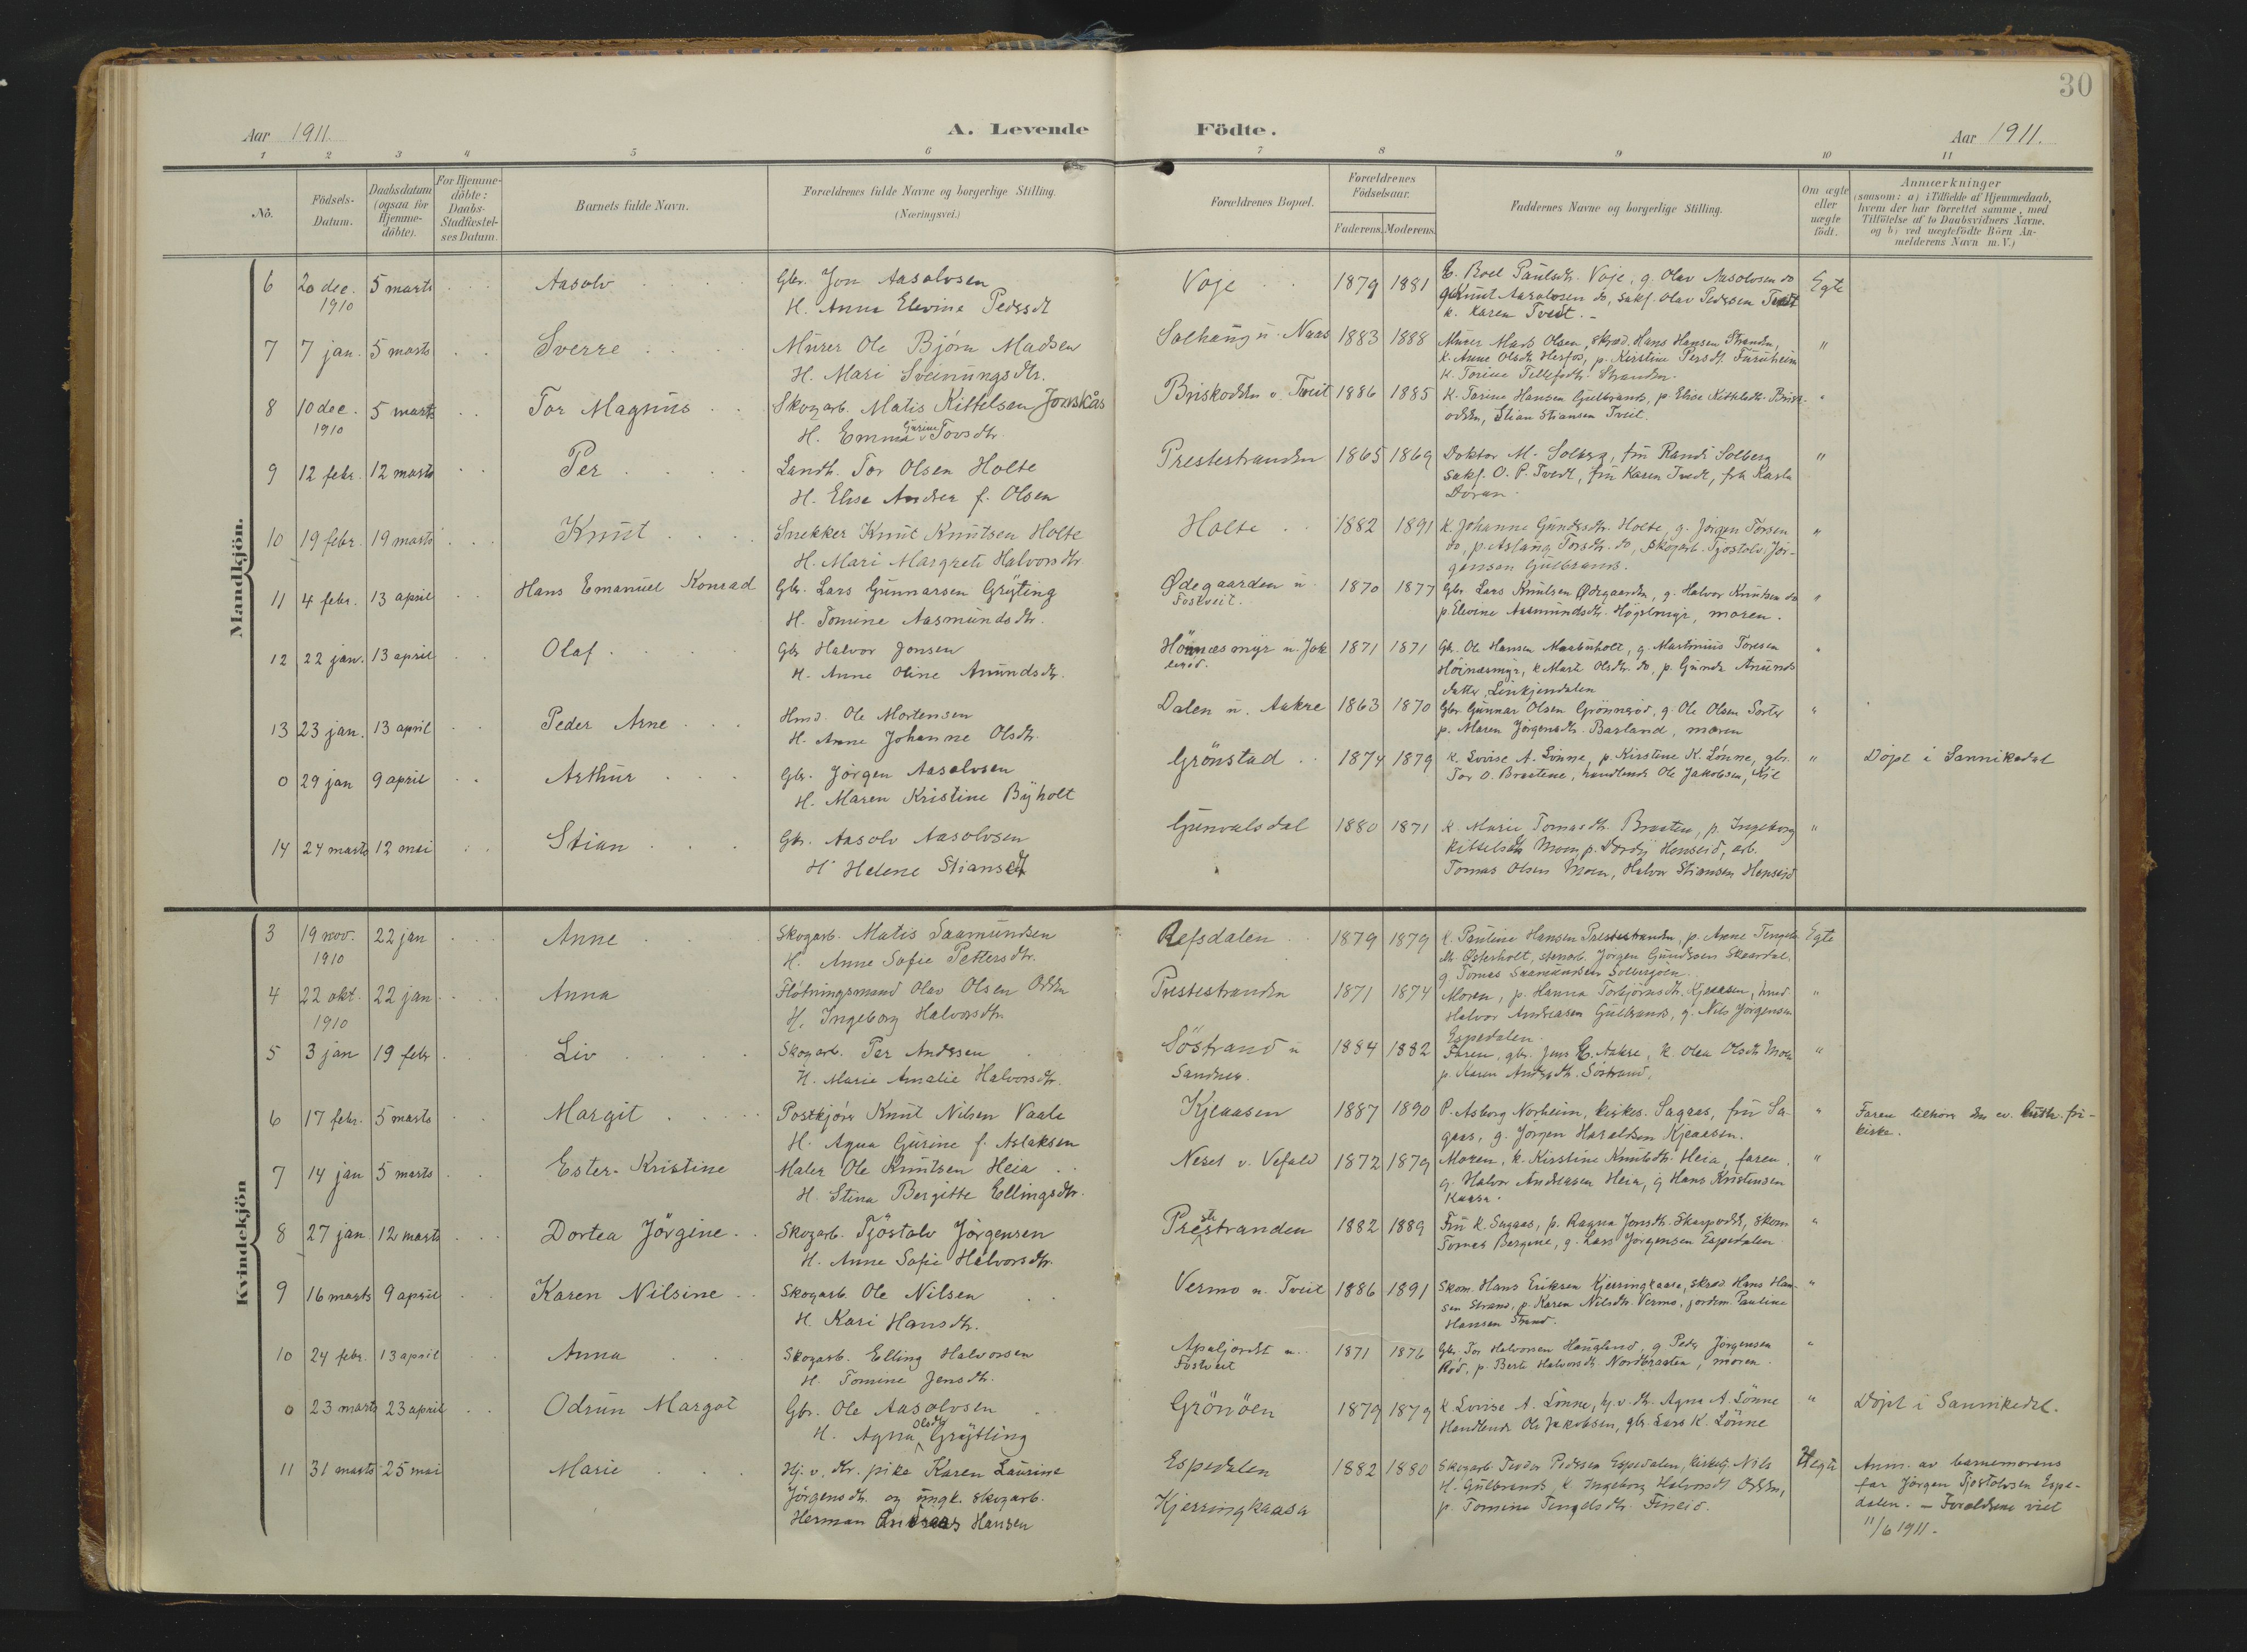 30
Aar 1911.
A. Levende Födte.
Aar 1911.
1 2 3 4 5 6 7 8 9 10 11
Nö.
Födsels-
Datum.
Daabsdatum
(ogsaa for
Hjemme-
döbte).
For Hjemme-
döbte:
Daabs-
Stadfæstel-
ses Datum.
Barnets fulde Navn.
Forældrenes fulde Navne og borgerlige Stilling.
(Næringsvei.)
Forældrenes Bopæl.
Forældrenes
Födselsaar.
Faderens. Moderens.
Faddernes Navne og borgerlige Stilling.
Om ægte
eller
uægte
födt.
Anmærkninger
(saasom: a) i Tilfælde af Hjemmedaab,
hvem der har forrettet samme, med
Tilföielse af to Daabsvidners Navne,
og b) ved uægtefödte Börn An-
melderens Navn m. V.)
Mandkjön.
6 20 dec. 1910 5 marts Aasolv
Gbr. Jon Aasolvsen
H. Anna Elevine Pedersdt
Voje 1879 1881
E. Roel Paulsdtr. Voje, g. Olav Aasolvsen do
gbr Knut Aasolvsen do, sakf. Olav Pedersen Tvedt
k. Karen Tvedt.
Egte
7 7 jan. 5 marts Sverre
Murer Ole Bjørn Madsen
H. Mari Sveinungsdtr.
Solhaug u. Naas 1883 1888
Murer Mads Olsen, skræd. Hans Hansen Stranden,
k. Anne Olsdtr Herfos, p. Kirstine Persdt. Furuheim
k. Torine Tellefsdtr. Stranden.
"
8 10 dec. 1910 5 marts Tor Magnus
Skogarb. Matis Kittelsen Jonskås
H. Emma Gurine Tovsdtr.
Briskodden u. Tveit 1886 1885
K. Torine Hansen Gulbrands, p. Elise Kittelsdtr. Brisk-
odden, Stian Stiansen Tveit.
"
9 12 febr. 12 marts Per
Landh. Tor Olsen Holte
H. Elise Andrea f. Olsen
Prestestranden 1865 1869
Doktor M. Solberg, fru Randi Solberg
sakf. O. P. Tvedt, fru Karen Tvedt, frk Karla
"
10 19 febr. 19 marts Knut
Snekker Knut Knutsen Holte
H. Mari Margrete Halvorsdtr
Holte 1882 1891
K. Johanne Gundersdtr. Holte, g. Jørgen Torsen
do, p. Aslaug Torsdtr. do, skogarb. Tjostolv Jør-
gensen Gulbrands.
"
11 4 febr. 13 april Hans Emanuel Konrad
Gbr. Lars Gunnarsen Grøting
H. Tomine Aasmundsdtr.
Ødegaarden u.
Fostveit. 1870 1877
Gbr. Lars Knutsen Ødegaarden, g. Halvor Knutsen do
p. Elevine Aasmundsdtr. Høgstmyr, moren.
"
12 22 jan. 13 april Olaf
Gbr Halvor Jonsen
H. Anne Oline Anundsdtr.
1871 1871
Gbr. Ole Hansen Maabuholt, g. Martinius Toresen
Høinæsmyr, k Marte Olsdtr. do, p. Gunda Anunds
datter, Linkjendalen
"
13 23 jan. 13 april Peder Arne
Hmd. Ole Mortensen
H. Anne Johanne Olsdtr.
Dalen u. Aakre 1863 1870
Gbr Gunnar Olsen Grønnerød, g. Ole Olsen Sorter
p. Maren Jørgensdtr. Barland, moren
"
0 29 jan 9 april Arthur
Gbr. Jörgen Aasolvsen
H. Maren Kristine Byholt
Grönstad 1874 1879
k. Lovise A. Lønne, p. Kirstine K. Lønne, gbr.
Tor O. Braatene, handlende Ole Jakobsen, Kil
"
Döpt i Sannikedal
14 24 marts 12 mai Stian
Gbr. Aasolv Aasolvsen
H. Helene Stiansdt
Gunvalsdal 1880 1871
k. Marie Tomasdtr. Braaten, p. Ingeborg
Kittelsdtr Moen, p. Dordy Henseid, arb.
Tomas Olsen Moen, Halvor Stiansen Henseid
"
Kvindekjön
3 19 nov. 1910 22 jan Anne
Skogarb. Matis Saamundsen
H. Anne Sofie Pettersdtr.
Refsdalen 1879 1879
K. Pauline Hansen Prestestranden, p. Anne Tengels
dtr. Østerholt, stenarb. Jørgen Gundersen Skaardal,
g Tomas Saamundsen
Egte
4 22 okt. 1910 22 jan. Anna
Fløtningsmand Olav Olsen Odden
H. Ingeborg Halvorsdtr.
Prestestranden 1871 1874
Moren, p. Hanna Torbjørnsdtr. Kjeaasen, hmd.
Halvor Andreasen Gulbrands, g. Nils Jörgensen
Espedalen.
"
5 3 jan 19 febr Liv
Skogarb. Per Andersen
H. Marie Amalie Halvorsdtr.
Söstrand u
Sandnes. 1884 1882
Faren, gbr. Jens E. Aakre, k. Olea Olsdtr Moen
p. Karen Andersdtr. Söstrand.
"
6 17 febr. 5 marts Margit
Postkjörer Knut Nilsen Vaale
H. Agna Gurine f. Aslaksen
Kjeaasen 1887 1890
P. Asborg Norheim, kirkes. Sagaas, fru Sa-
gaas, g. Jörgen Haraldsen Kjeaasen.
"
Faren tilhører den ev. luth. fri-
kirke.
7 14 jan 5 marts Ester-Kristine
Maler Ole Knutsen Heia
H. Stina Bergitte Ellingsdtr.
Neset v. Vefald 1872 1879
Moren, k. Kirstine Knutsdtr. Heia, faren
g. Halvor Andreasen Heia, g Hans Kristensen
Kaasa.
"
8 27 jan 12 marts Dortea Jörgine
Skogarb. Tjöstolv Jörgensen
H. Anne Sofie Halvorsdtr.
Prestestranden 1882 1889
Fru K. Sagaas, p. Ragna Jonsdtr. Skarpodd, skom
Tomas Bergene, g. Lars Jörgensen Espedalen
"
9 16 marts 9 april Karen Nilsine
Skogarb. Ole Nilsen
H. Kari Hansdtr.
Vermo u. Tveit 1886 1891
Skom. Hans Eriksen Kjerringkaasa, skræd. Hans Han-
sen Strand, p. Karen Nilsdtr. Vermo, jordem. Pauline
Hansen Strand.
"
10 24 febr. 13 april Anna
Skogarb. Elling Halvorsen
H. Tomine Jensdtr.
Apaljordet u.
Fostveit 1871 1876
Gbr. Tor Halvorsen Haugland, g Peder Jörgensen
Rød, p. Berte Halvorsdtr. Nordbraaten, moren.
"
0 23 marts 23 april Odrun Margot
Gbr. Ole Aasolvsen
H. Agna Olsdtr Gröjtling
Grönöen 1879 1879
k Lovise A. Lönne, hj. v. dtr. Agna A. Lönne
Handlende Ole Jakobsen, gbr. Lars K. Lönne
"
Döpt i Sannikedal.
11 31 marts 25 mai Marie
Hj. v. dtr. pike Karen Laurine
Jörgensdtr. og ungk. skogarb.
Herman Andreas Hansen
Espedalen
Kjerringkaasa 1882 1880
Skogarb. Teodor Pedersen Espedalen, kirketj. Nils
H. Gulbrands, k. Ingeborg Halvorsdt Odden,
p. Tomine Tengelsdtr. Eineid.
Uegte
Anm. av barnemorens
far Jörgen Tjostolvsen Espe-
dalen. – Forældrene viet
11/6 1911.